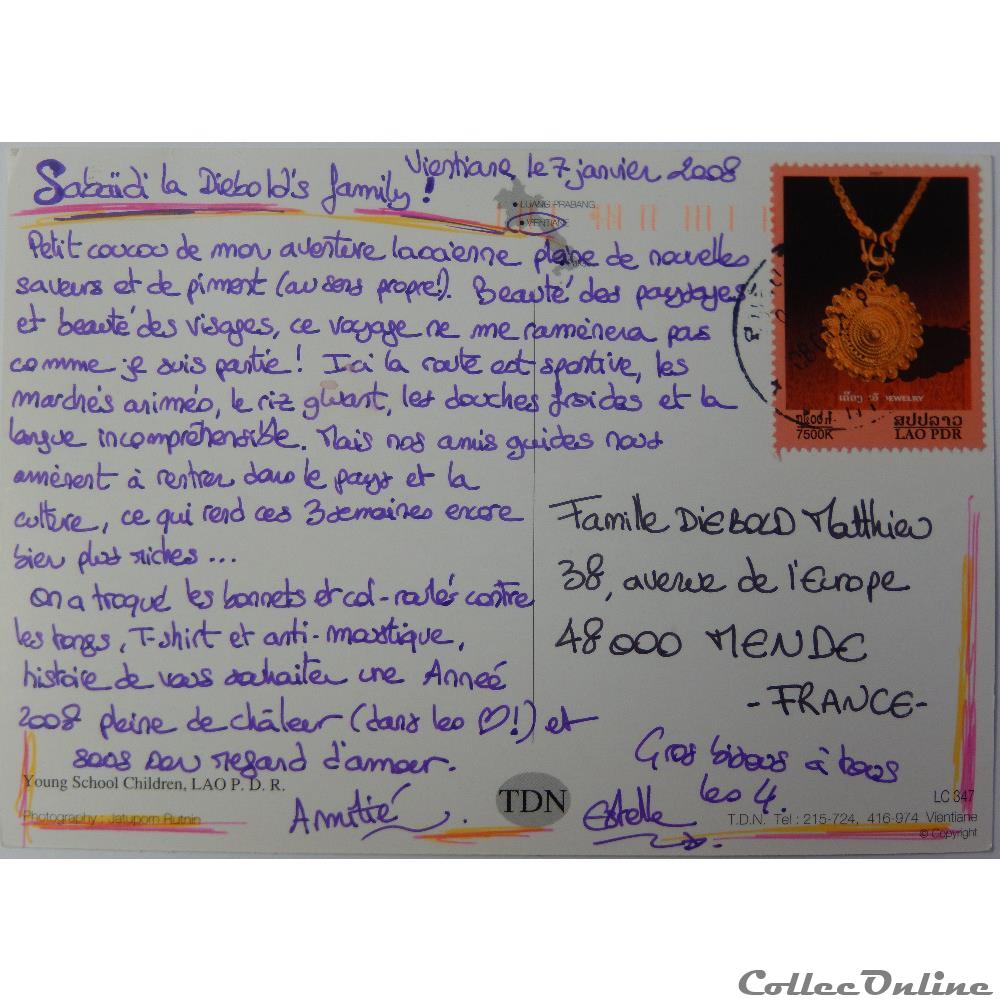 Vientiane, le 7 janvier 2008
Sabaïdi la Diebold's family !
• LUANG PRABANG
• VIENTIANE
Petit coucou de mon aventure laocienne pleine de nouvelles
saveurs et de piment (au sens propre!). Beauté des paysages
et beauté des visages, ce voyage ne me ramènera pas
comme je suis partie ! Ici la route est sportive, les
marchés animés, le riz gluant, les douches froides et la
langue incompréhensible. Mais nos amis guides nous
amènent à rentrer dans le pays et la
culture, ce qui rend ces 3 semaines encore
bien plus riches ...
On a troqué les bonnets et col-roulés contre
les tongs, T-shirt et anti-moustique,
histoire de vous souhaiter une Année
2008 pleine de châleur (dans les ♡!) et
sous son regard d'amour.
Amitié.
Estelle
Gros bisous à tous
les 4.
JEWELRY
7500K
ສປປລາວ
LAO PDR
Famille DIEBOLD Matthieu
38, avenue de l'Europe
48000 MENDE
- FRANCE -
Young School Children, LAO P. D. R.
Photography : Jatuporn Rutnin
TDN
LC 347
T.D.N. Tel : 215-724, 416-974 Vientiane
© Copyright
CollecOnline